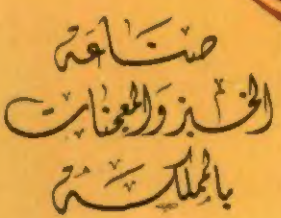 صناعة
الخبز والمعجنات
بالمملكة